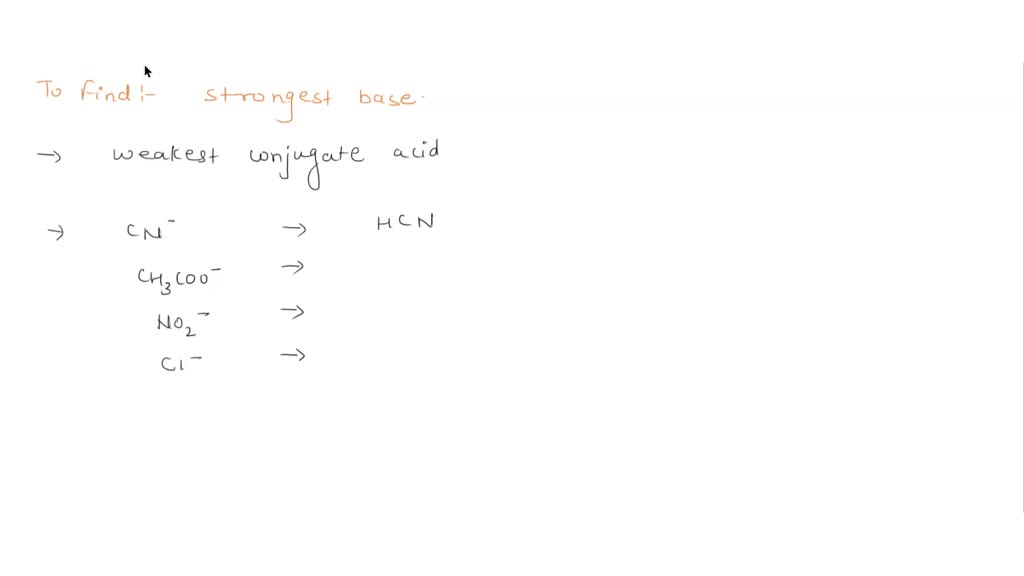 To find :- strongest base.
→ weakest conjugate acid
→ CN⁻ → HCN
CH₃COO⁻ →
NO₂⁻ →
Cl⁻ →